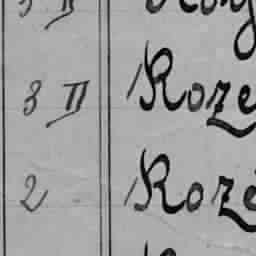 3 II Roze
2 Rozé